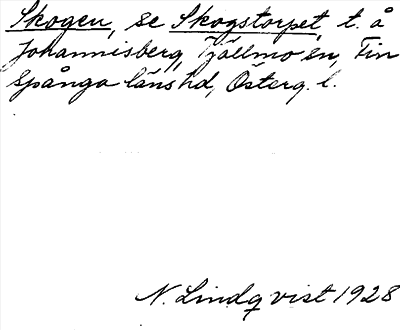 Skogen, se Skogstorpet, t. å
Johannisberg, Tjällmo sn, Fin
spånga läns hd, Österg. l.
N. Lindqvist 1928